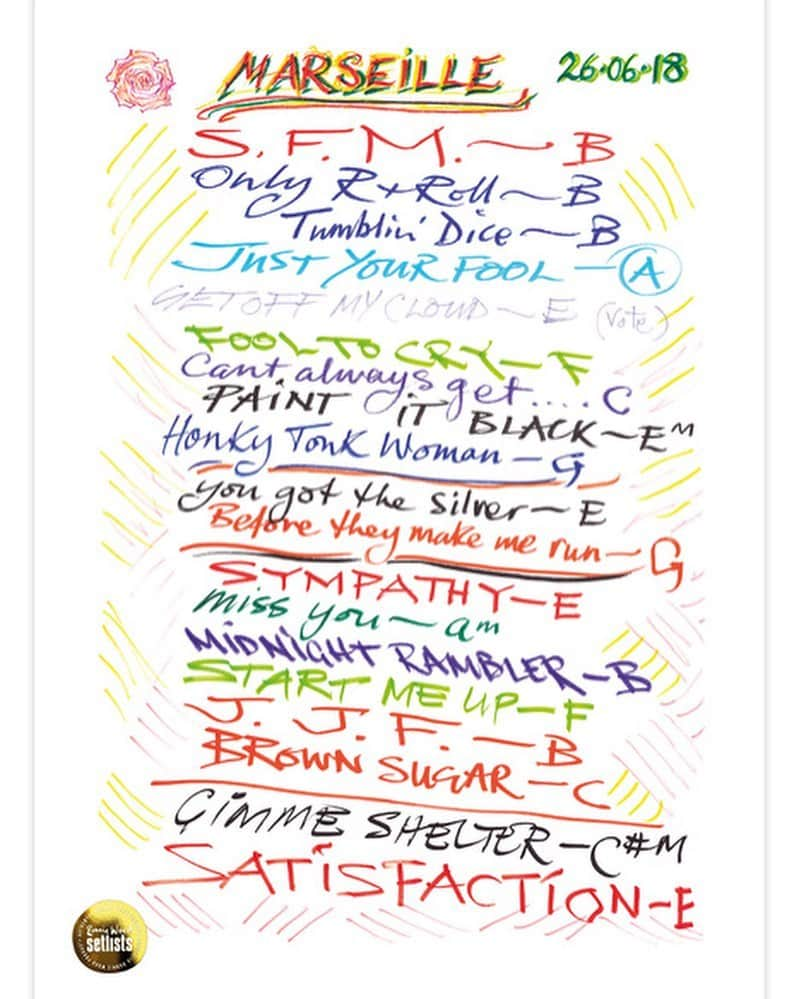 MARSEiLLE 26·06·18
S. F. M. ~ B
Only R+Roll ~ B
Tumblin' Dice ~ B
JUST YOUR FOOL - A
GET OFF MY CLOUD ~ E (vote)
FOOL TO CRY - F
Cant always get.... C
PAiNT iT BLACK ~ Em
Honky Tonk Woman - G
You got the Silver ~ E
Before they make me run - G
SYMPATHY - E
Miss you ~ am
MiDNiGHT RAMBLER - B
START ME UP - F
J. J. F. - B
BROWN SUGAR - C
GiMME SHELTER - C#M
SATiSFACTiON - E
Ronnie Wood
setlists